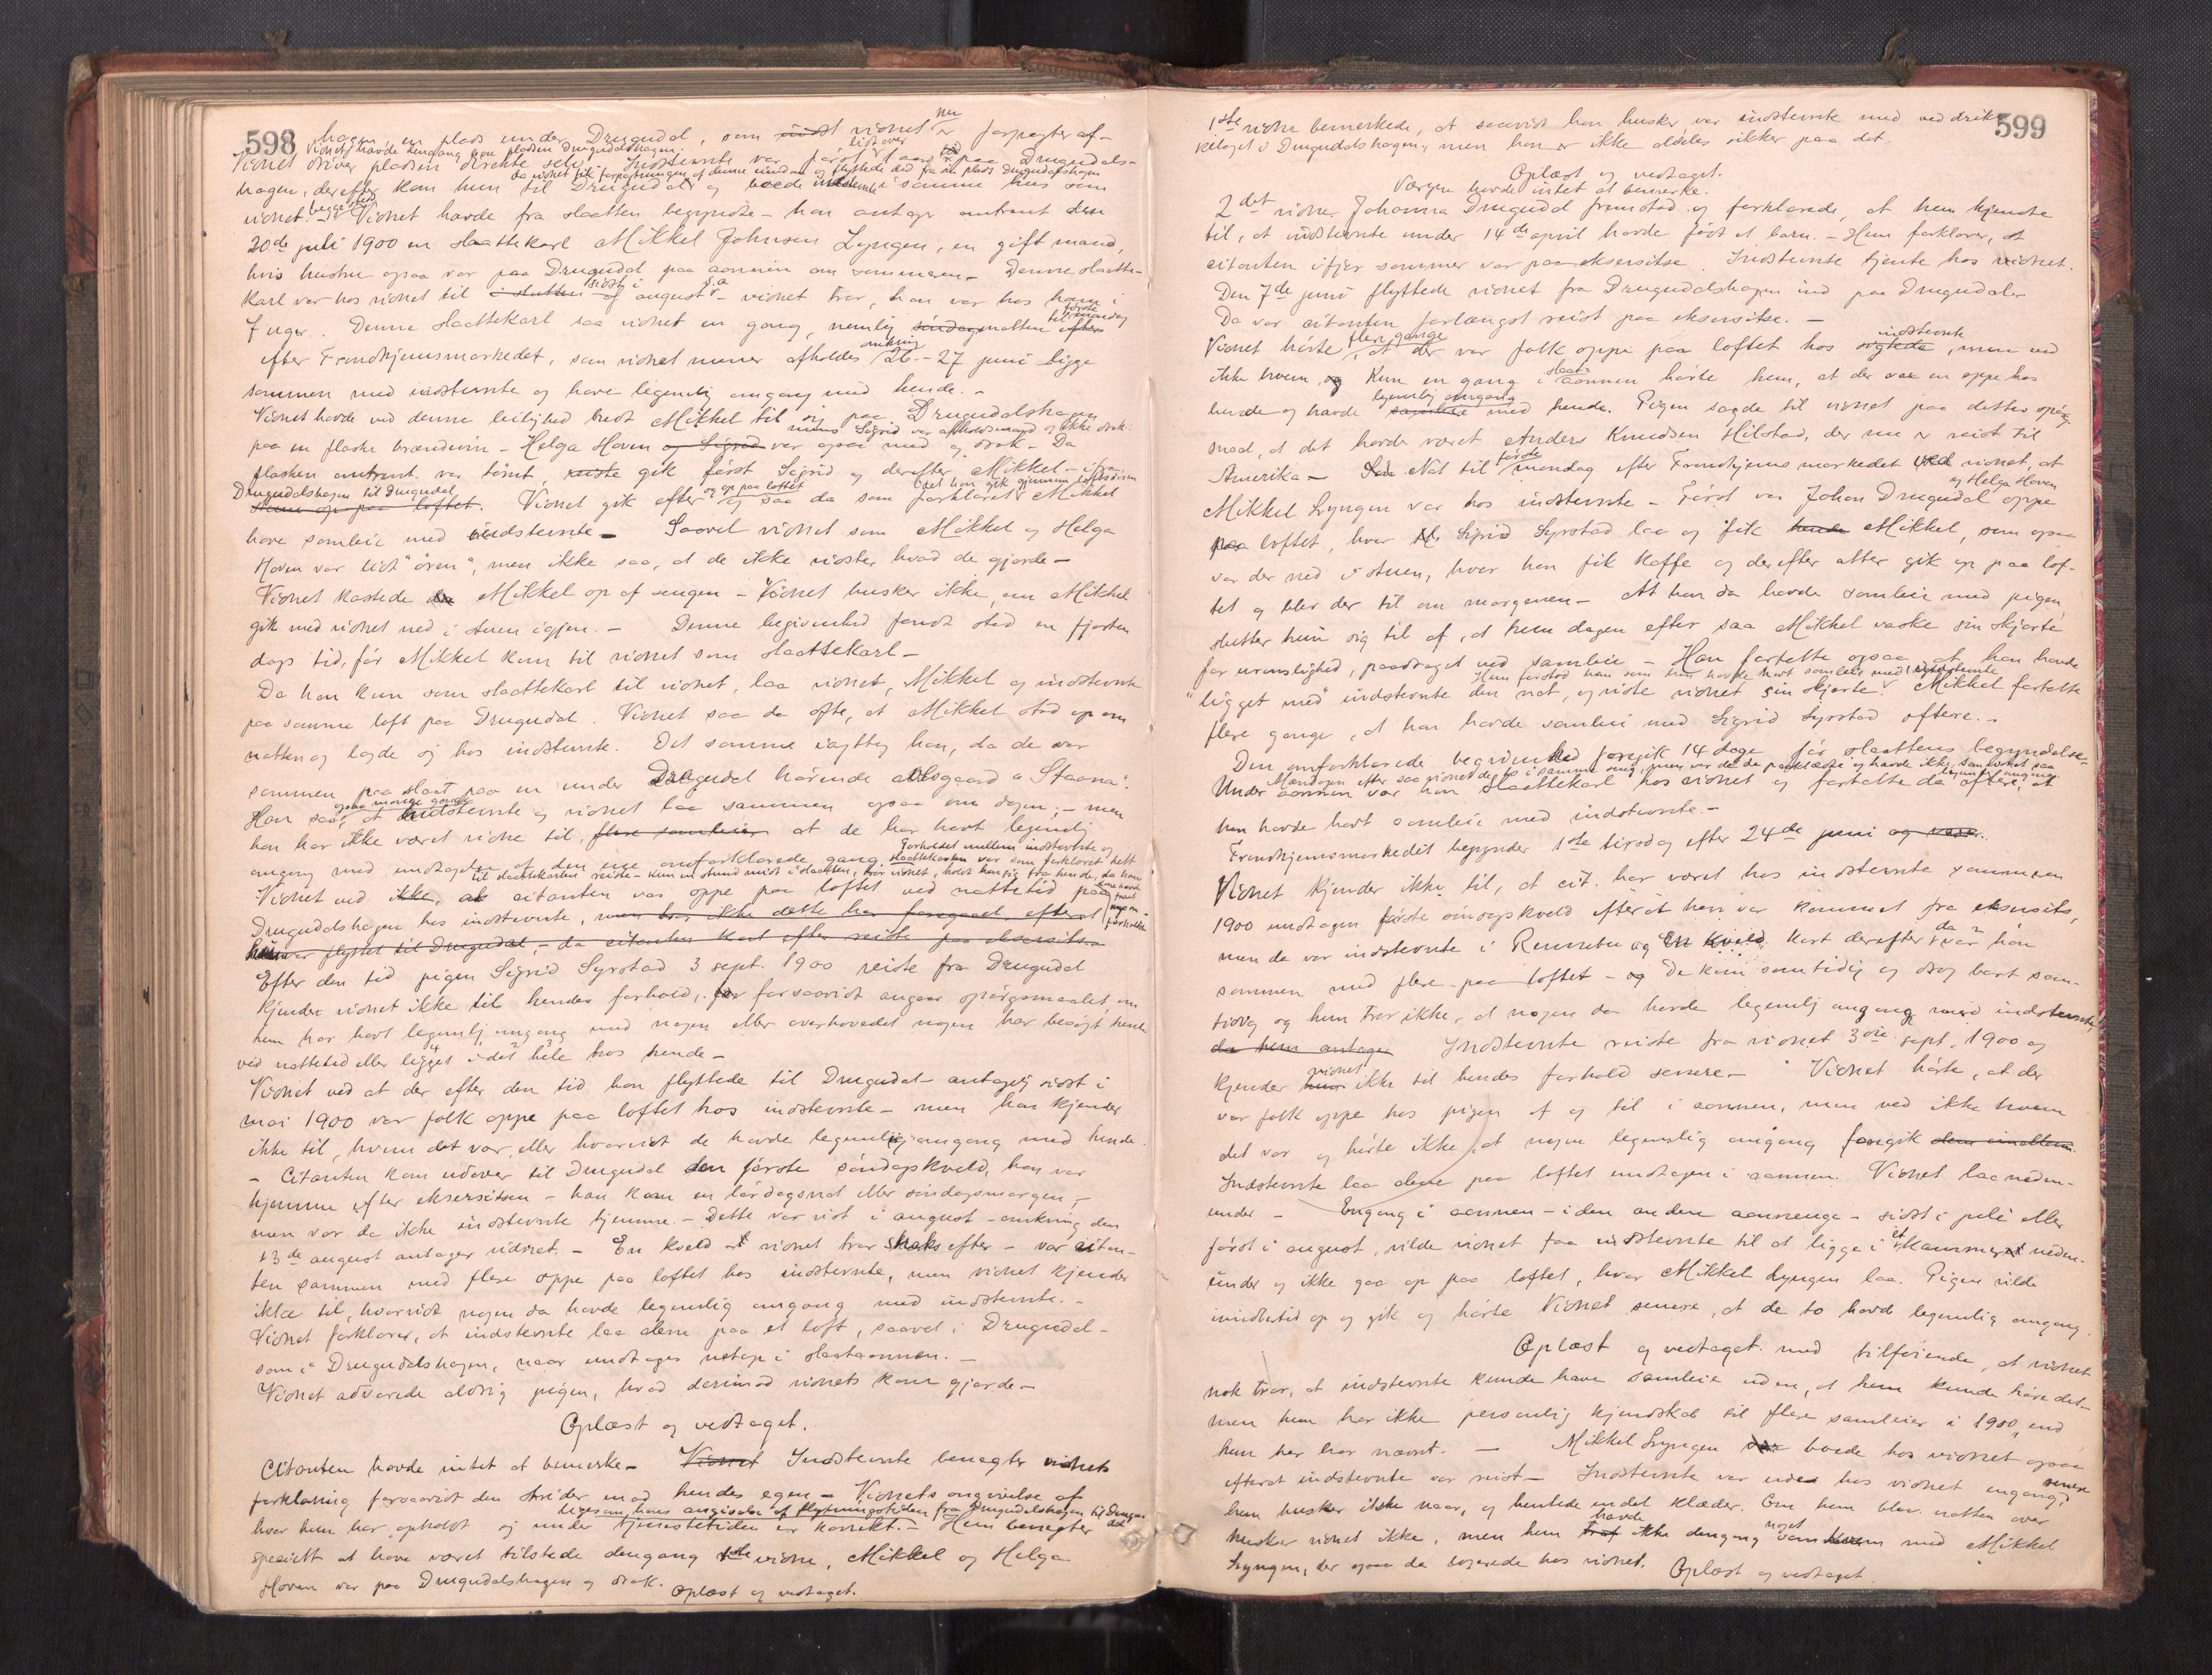 598
hagen en plads under Drugudal, som vidnet nu er forpagter af-
Vidnet havde dengang hele pladsen Drugudalshagen.
Vidnet driver pladsen direkte selv. Indstevnte var først lidt over 1 aar paa Drugudals-
da vidnet fik forpagtningen af denne eiendom og flyttede ind fra sin plads Drugudalshagen
hagen, derefter kom hun til Drugudal og boede indstevnte i samme hus som
vidnet begge sted. Vidnet havde fra slaatten begyndte – han antager omtrent den
20de juli 1900 en slaattekarl Mikkel Johnsen Lyngen, en gift mand,
hvis hustru ogsaa var paa Drugudal paa aonnen om sommeren – Denne slaatte-
karl var hos vidnet til sidst i august d.a. – vidnet tror, han var hos ham i
7 uger. Denne slaattekarl saa vidnet en gang, nemlig natten til første mandag
efter Trondhjemsmarkedet, som vidnet mener afholdes omkring 26.–27 juni ligge
sammen med indstevnte og have legemlig omgang med hende. –
Vidnet havde ved denne leilighed budt Mikkel til sig paa Drugudalshagen
paa en flaske brændevin – Helga Hoven var ogsaa med og drak – mens Sigrid var afholdsmand og ikke drak. Da
flasken omtrent var tømt, gik først Sigrid og derefter Mikkel – ifra
Drugudalshagen til Drugudal og op paa loftet. Vidnet gik efter og saa da som forklaret Mikkel
have samleie med indstevnte – Saavel vidnet som Mikkel og Helga
Hoven var lidt "øren", men ikke saa, at de ikke vidste, hvad de gjorde –
Vidnet kastede Mikkel op af sengen – Vidnet husker ikke, om Mikkel
gik med vidnet ned i stuen igjen. – Denne begivenhed fandt sted en fjorten
dags tid, før Mikkel kom til vidnet som slaattekarl –
Da han kom som slaattekarl til vidnet, laa vidnet, Mikkel og indstevnte
paa samme loft paa Drugudal. Vidnet saa da ofte, at Mikkel stod op om
natten og lagde sig hos indstevnte. Det samme iagttog han, da de var
sammen paa slaat paa en under Drugudal hørende avlsgaard "Staana".
Han saa ogsaa mange gange, at indstevnte og vidnet laa sammen ogsaa om dagen; – men
han har ikke været vidne til, flere samleier at de har havt legemlig
omgang med undtagelse af den ene omforklarede gang. Forholdet mellem indstevnte og slaattekarlen var som forklaret helt
til slaattekarlen reiste – kun en stund midt i slaatten, tror vidnet, holdt han sig fra hende, da hans
Vidnet ved ikke, at citanten var oppe paa loftet ved nattetid paa
Drugudalshagen hos indstevnte, men tror ikke dette har foregaaet, efterat
hun var flyttet til Drugudal, – da citanten kort efter reiste paa eksersitsen
Efter den tid pigen Sigrid Syrstad 3 sept. 1900 reiste fra Drugudal
kjender vidnet ikke til hendes forhold, forsaavidt angaar spørgsmaalet, om
hun har havt legemlig omgang med nogen eller overhovedet nogen har besøgt hende
ved nattetid eller ligget i det hele hos hende –
Vidnet ved at der efter den tid han flyttede til Drugudal – antagelig sidst i
mai 1900 var folk oppe paa loftet hos indstevnte – men han kjender
ikke til, hvem det var, eller hvorvidt de havde legemlig omgang med hende.
– Citanten kom udover til Drugudal den første søndagskveld, han var
hjemme efter eksersitsen – han kom en lørdagsnat eller søndagsmorgen, –
men var da ikke indstevnte hjemme. – Dette var vist i august – omkring den
13de august antager vidnet. – En kveld vidnet tror straks efter – var citan-
ten sammen med flere oppe paa loftet hos indstevnte, men vidnet kjender
ikke til, hvorvidt nogen da havde legemlig omgang med indstevnte. –
Vidnet forklarer, at indstevnte laa alene paa et loft, saavel i Drugudal –
som i Drugudalshagen, naar undtages netop i slaataonnen. –
Vidnet advarede aldrig pigen, hvad derimod vidnets kone gjorde –
Oplæst og vedtaget.
Citanten havde intet at bemerke – Vidnet Indstevnte benegter vidnets
forklaring forsaavidt den strider mod hendes egen – Vidnets angivelse af
ligesom hans angivelse af flytningstiden fra Drugudalshagen til Drugudal
hvor hun har opholdt sig under tjenestetiden er korrekt. – Hun benegter
specielt at have været tilstede dengang 1ste vidne, Mikkel og Helga
Hoven var paa Drugudalshagen og drak. Oplæst og vedtaget.
599
1ste vidne bemerkede, at saavidt han husker var indstevnte med ved drik-
kelaget i Drugudalshagen, men han er ikke aldeles sikker paa det.
Oplæst og vedtaget.
Værgen havde intet at bemerke.
2det vidne Johanna Drugudal fremstod og forklarede, at hun kjendte
til, at indstevnte under 14de april havde født et barn. – Hun forklarer, at
citanten ifjor sommer var paa eksersitse. Indstevnte tjente hos vidnet.
Den 7de juni flyttede vidnet fra Drugudalshagen ind paa Drugudal.
Da var citanten forlængst reist paa eksersitse. –
Vidnet hørte flere gange, at der var folk oppe paa loftet hos indstevnte, men ved
ikke hvem, og kun en gang i slaataonnen hørte hun, at der var en oppe hos
hende og havde legemlig omgang med hende. Pigen sagde til vidnet paa dettes spørgs-
maal, at det havde været Anders Knudsen Hilstad, der nu er reist til
Amerika – Nat til første mandag efter Trondhjems markedet ved vidnet, at
Mikkel Lyngen var hos indstevnte – Først var Johan Drugudal og Helga Hoven oppe
paa loftet, hvor Sigrid Syrstad laa og fik Mikkel, som ogsaa
var der ned i stuen, hvor han fik kaffe og derefter atter gik op paa lof-
tet og blev der til om morgenen – At han da havde samleie med pigen,
slutter hun sig til af, at hun dagen efter saa Mikkel vaske sin skjorte
for urenslighed, paadraget ved samleie – Han fortalte ogsaa at han havde
Hun forstod ham som han havde havt samleie med indstevnte
"ligget med" indstevnte den nat, og viste vidnet sin skjorte. Mikkel fortalte
flere gange, at han havde samleie med Sigrid Syrstad oftere. –
Den omforklarede begivenhed foregik 14 dage før slaattens begyndelse.
Mandagen efter saa vidnet de to i samme seng, men var de da paaklædte og havde ikke, saavidt saa legemlig omgang.
Under aonnen var han slaattekarl hos vidnet og fortalte da oftere, at
han havde havt samleie med indstevnte. –
Trondhjemsmarkedet begynder 1ste tirsdag efter 24de juni og varer.
Vidnet kjender ikke til, at cit. har været hos indstevnte sommeren
1900 undtagen første søndagskveld efterat han var kommet fra eksersits,
men da var indstevnte i Rennebu og En kveld kort derefter da var han
sammen med flere paa loftet – og De kom samtidig og drog bort sam-
tidig og hun tror ikke, at nogen da havde legemlig omgang med indstevnte,
da hun antager Indstevnte reiste fra vidnet 3die sept. 1900 og
kjender vidnet ikke til hendes forhold senere. – Vidnet hørte, at der
var folk oppe hos pigen af og til i aonnen, men ved ikke hvem
det var og hørte ikke, at nogen legemlig omgang foregik dem imellem.
Indstevnte laa alene paa loftet undtagen i aonnen. Vidnet laa neden-
under – Engang i aonnen – i den anden aonnenge – sidst i juli eller
først i august, vilde vidnet faa indstevnte til at ligge i et kammer neden-
under og ikke gaa op paa loftet, hvor Mikkel Lyngen laa. Pigen vilde
imidlertid op og gik og hørte vidnet senere, at de to havde legemlig omgang.
Oplæst og vedtaget med tilføiende, at vidnet
nok tror, at indstevnte kunde have samleie uden, at hun kunde høre det –
men hun har ikke personlig kjendskab til flere samleier i 1900, end
hun her har nævnt. – Mikkel Lyngen boede hos vidnet ogsaa
efterat indstevnte var reist – Indstevnte var hos vidnet engang senere
hun husker ikke naar, og hentede endel klæder. Om hun blev natten over
husker vidnet ikke, men hun havde ikke dengang noget med Mikkel
Lyngen, der ogsaa da logerede hos vidnet. Oplæst og vedtaget.